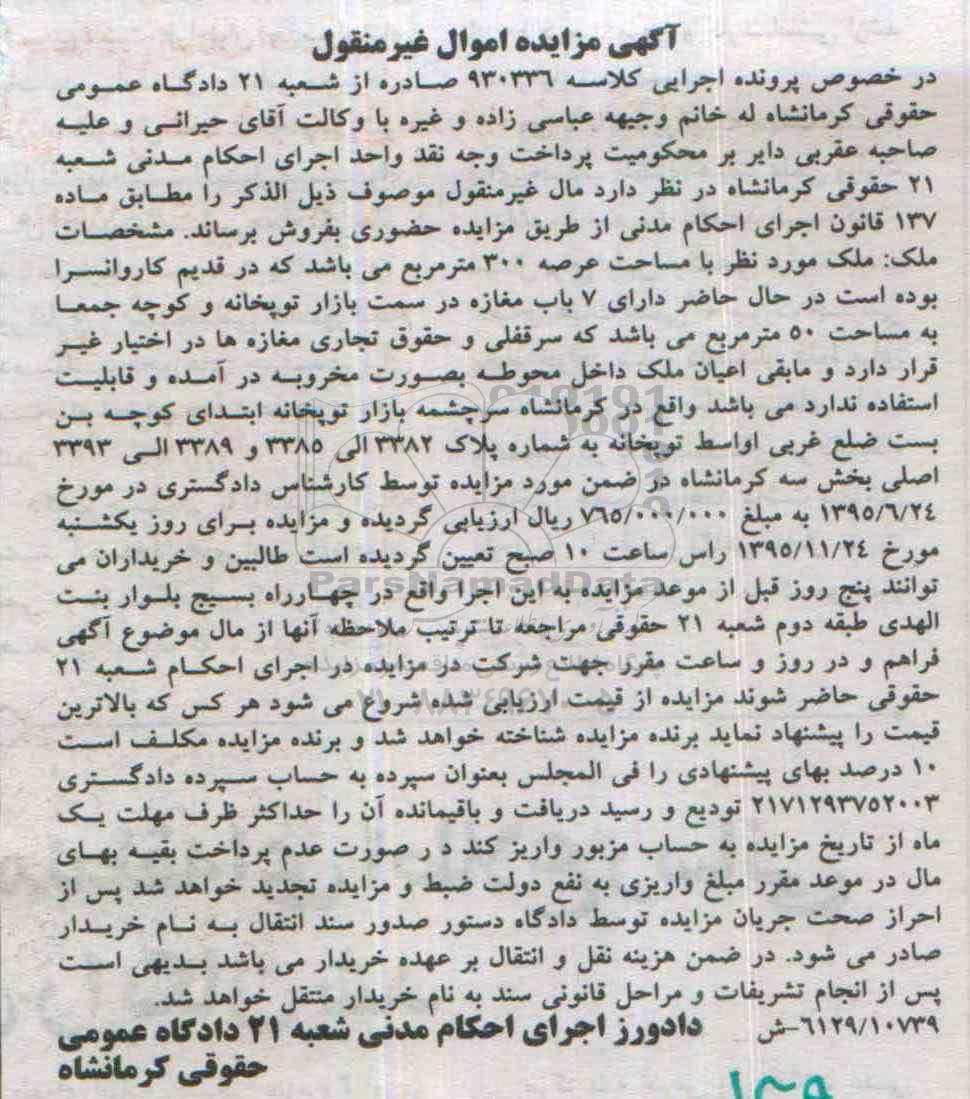 آگهی مزایده اموال غیرمنقول
در خصوص پرونده اجرایی کلاسه ۹۳۰۳۳۶ صادره از شعبه ۲۱ دادگاه عمومی
حقوقی کرمانشاه له خانم وجیهه عباسی زاده و غیره با وکالت آقای حیرانی و علیه
صاحبه عقربی دایر بر محکومیت پرداخت وجه نقد واحد اجرای احکام مدنی شعبه
۲۱ حقوقی کرمانشاه در نظر دارد مال غیرمنقول موصوف ذیل الذکر را مطابق ماده
۱۳۷ قانون اجرای احکام مدنی از طریق مزایده حضوری بفروش برساند. مشخصات
ملک: ملک مورد نظر با مساحت عرصه ۳۰۰ مترمربع می باشد که در قدیم کاروانسرا
بوده است در حال حاضر دارای ۷ باب مغازه در سمت بازار توپخانه و کوچه جمعا
به مساحت ۵۰ مترمربع می باشد که سرقفلی و حقوق تجاری مغازه ها در اختیار غیر
قرار دارد و مابقی اعیان ملک داخل محوطه بصورت مخروبه در آمده و قابلیت
استفاده ندارد می باشد واقع در کرمانشاه سرچشمه بازار توپخانه ابتدای کوچه بن
بست ضلع غربی اواسط توپخانه به شماره پلاک ۳۳۸۲ الی ۳۳۸۵ و ۳۳۸۹ الی ۳۳۹۳
اصلی بخش سه کرمانشاه در ضمن مورد مزایده توسط کارشناس دادگستری در مورخ
۱۳۹۵/۶/۲۴ به مبلغ ۷۶۵/۰۰۰/۰۰۰ ریال ارزیابی گردیده و مزایده برای روز یکشنبه
مورخ ۱۳۹۵/۱۱/۲۴ راس ساعت ۱۰ صبح تعیین گردیده است طالبین و خریداران می
توانند پنج روز قبل از موعد مزایده به این اجرا واقع در چهارراه بسیج بلوار بنت
الهدی طبقه دوم شعبه ۲۱ حقوقی مراجعه تا ترتیب ملاحظه آنها از مال موضوع آگهی
فراهم و در روز و ساعت مقرر جهت شرکت در مزایده در اجرای احکام شعبه ۲۱
حقوقی حاضر شوند مزایده از قیمت ارزیابی شده شروع می شود هر کس که بالاترین
قیمت را پیشنهاد نماید برنده مزایده شناخته خواهد شد و برنده مزایده مکلف است
۱۰ درصد بهای پیشنهادی را فی المجلس بعنوان سپرده به حساب سپرده دادگستری
۲۱۷۱۲۹۳۷۵۲۰۰۳ تودیع و رسید دریافت و باقیمانده آن را حداکثر ظرف مهلت یک
ماه از تاریخ مزایده به حساب مزبور واریز کند د ر صورت عدم پرداخت بقیه بهای
مال در موعد مقرر مبلغ واریزی به نفع دولت ضبط و مزایده تجدید خواهد شد پس از
احراز صحت جریان مزایده توسط دادگاه دستور صدور سند انتقال به نام خریدار
صادر می شود. در ضمن هزینه نقل و انتقال بر عهده خریدار می باشد بدیهی است
پس از انجام تشریفات و مراحل قانونی سند به نام خریدار منتقل خواهد شد.
۶۱۲۹/۱۰۷۳۹-ش دادورز اجرای احکام مدنی شعبه ۲۱ دادگاه عمومی
حقوقی کرمانشاه
ParsNamadData